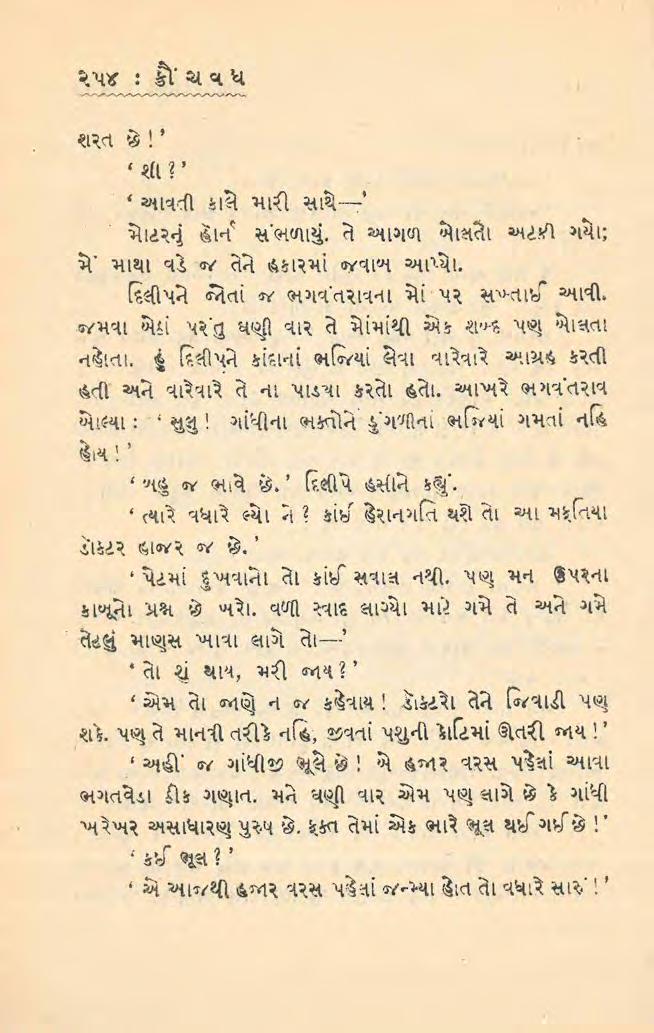 ૨૫૪ : ક્રૌંચવધ
શરત છે !’
‘ શી ?’
‘ આવતી કાલે મારી સાથે—’
મોટરનું હૉર્ન સંભળાયું. તે આગળ બોલતો અટકી ગયો;
મેં માથા વડે જ તેને હકારમાં જવાબ આપ્યો.
દિલીપને જોતાં જ ભગવંતરાવના મોં પર સખ્તાઈ આવી.
જમવા બેઠાં પરંતુ ઘણી વાર તે મોંમાંથી એક શબ્દ પણ બોલતા
નહોતા. હું દિલીપને કાંદાનાં ભજિયાં લેવા વારેવારે આગ્રહ કરતી
હતી અને વારેવારે તે ના પાડ્યા કરતો હતો. આખરે ભગવંતરાવ
બોલ્યા : ‘ સુલુ ! ગાંધીના ભક્તોને ડુંગળીનાં ભજિયાં ગમતાં નહિ
હોય !’
‘ બહુ જ ભાવે છે.’ દિલીપે હસીને કહ્યું.
‘ ત્યારે વધારે લ્યો ને ? કાંઈ હેરાનગતિ થશે તો આ મફતિયા
ડૉકટર હાજર જ છે.’
‘ પેટમાં દુખવાનો તો કાંઈ સવાલ નથી. પણ મન ઉપરના
કાબૂનો પ્રશ્ન છે ખરો. વળી સ્વાદ લાગ્યો માટે ગમે તે અને ગમે
તેટલું માણસ ખાવા લાગે તો—’
‘ તો શું થાય, મરી જાય ?’
‘ એમ તો જાણે ન જ કહેવાય ! ડૉક્ટરો તેને જિવાડી પણ
શકે. પણ તે માનવી તરીકે નહિ, જીવતાં પશુની કોટિમાં ઊતરી જાય !’
‘ અહીં જ ગાંધીજી ભૂલે છે ! એ હજાર વરસ પહેલાં આવા
ભગતવેડા ઠીક ગણાત. મને ઘણી વાર એમ પણ લાગે છે કે ગાંધી
ખરેખર અસાધારણ પુરુષ છે. ફક્ત તેમાં એક ભારે ભૂલ થઈ ગઈ છે !’
‘ કઈ ભૂલ ?’
‘ એ આજથી હજાર વરસ પહેલાં જન્મ્યા હોત તો વધારે સારું !’